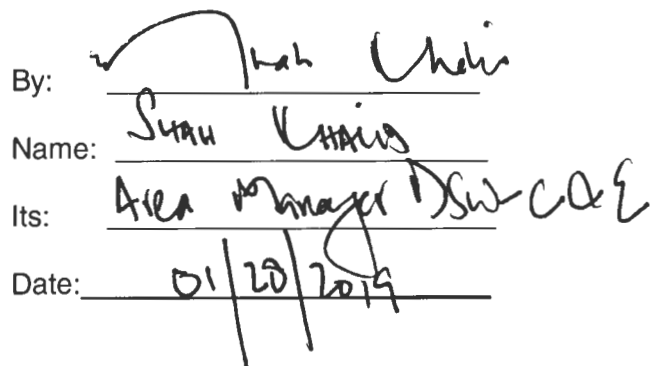 By: Shah Khalid
Name: SHAH KHALID
Its: Area Manager DSW-C&E
Date: 01/28/2019